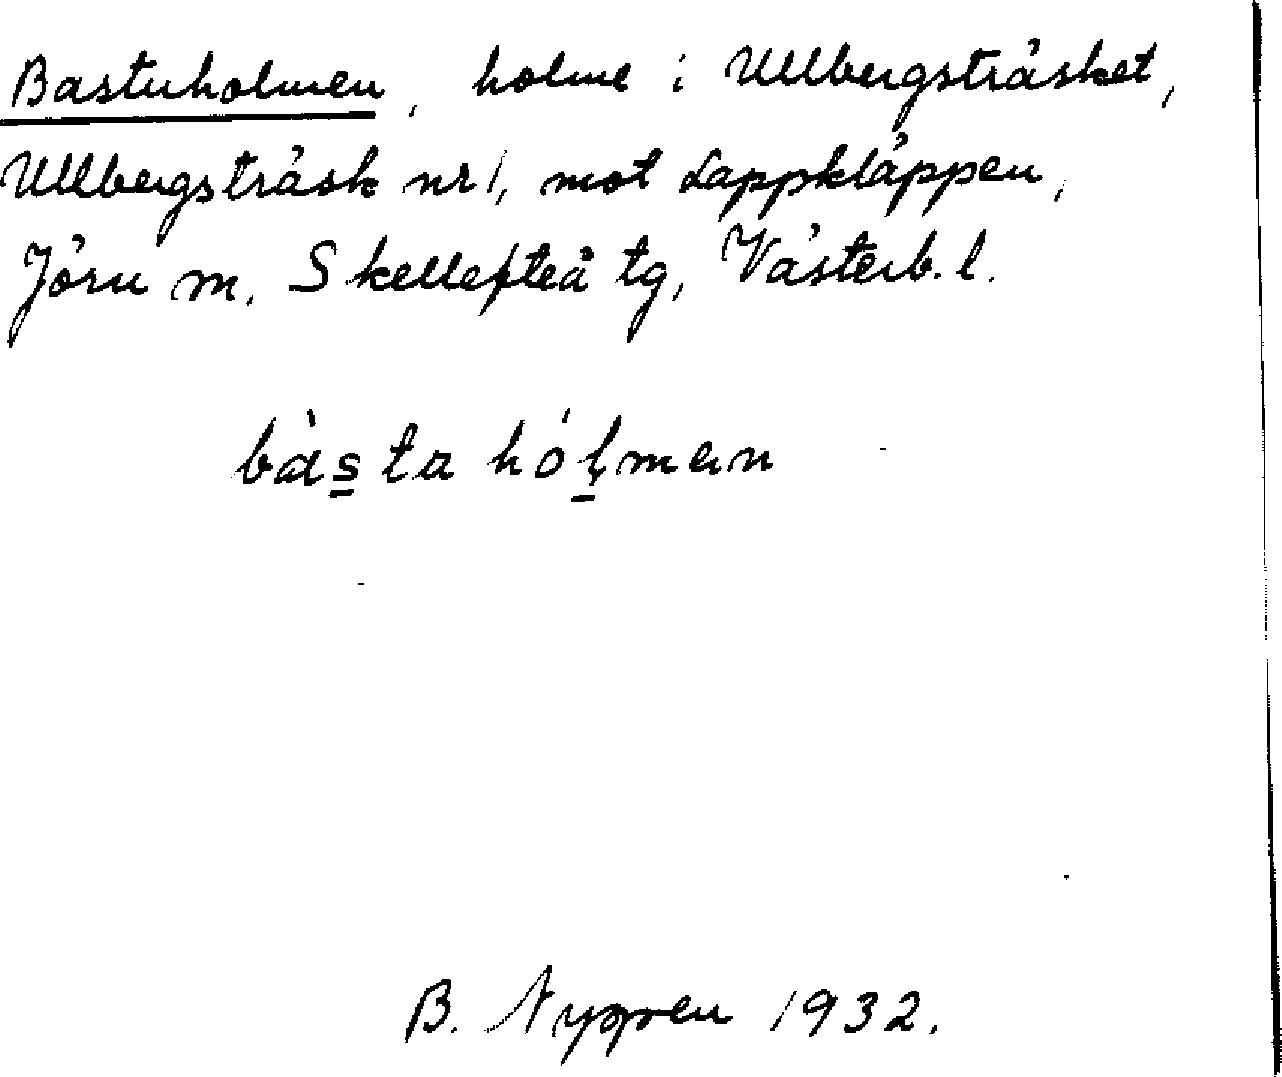 Bastuholmen, holme i Ullbergsträsket,
Ullbergsträsk nr 1, mot Lappkläppen,
Jörn sn, Skellefteå tg, Västerb. l.
bàs̠ta hól̠man
B. 1932.